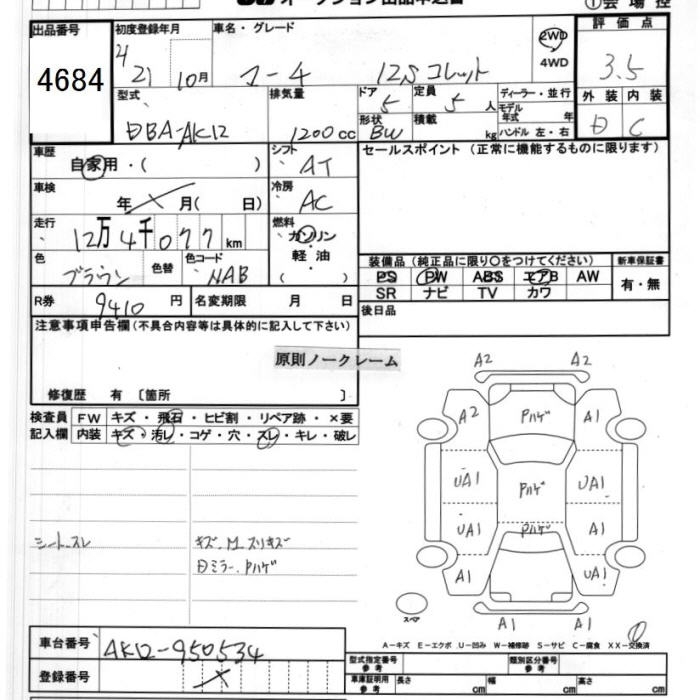 オークション出品申込書 ①会場控
出品番号 4684
初度登録年月 21 10月
車名・グレード マーチ 12S コレット
2WD 4WD
評価点 3.5
外装 D 内装 C
型式 DBA-AK12
排気量 1200cc
ドア 5 定員 5人
形状 BW 積載 kg
ディーラー・並行
モデル年式 年
ハンドル 左・右
車歴 自家用・( )
シフト AT
セールスポイント (正常に機能するものに限ります)
車検 年 月( 日)
冷房 AC
走行 12万4千077km
燃料 ガソリン・軽油 ( )
色 ブラウン 色替 色コード NAB
装備品 (純正品に限り○をつけてください) 新車保証書
PS PW ABS エアB AW 有・無
SR ナビ TV カワ
R券 9410円 名変期限 月 日
後日品
注意事項申告欄 (不具合内容等は具体的に記入して下さい)
原則ノークレーム
修復歴 有 〔箇所 〕
検査員 FW キズ・飛石・ヒビ割・リペア跡・×要
記入欄 内装 キズ・汚レ・コゲ・穴・スレ・キレ・破レ
A2 A2
A2 Pハゲ A1
UA1 Pハゲ UA1
UA1 Pハゲ A1
A1 UA1
A1 A1
シートスレ キズ.M.スリキズ
Dミラー.Pハゲ
スペア
A－キズ E－エクボ U－凹み W－補修跡 S－サビ C－腐食 XX－交換済
車台番号 AK12-950534
登録番号
型式指定番号 参考 類別区分番号 参考
車庫証明用 参考 長さ cm 幅 cm 高さ cm